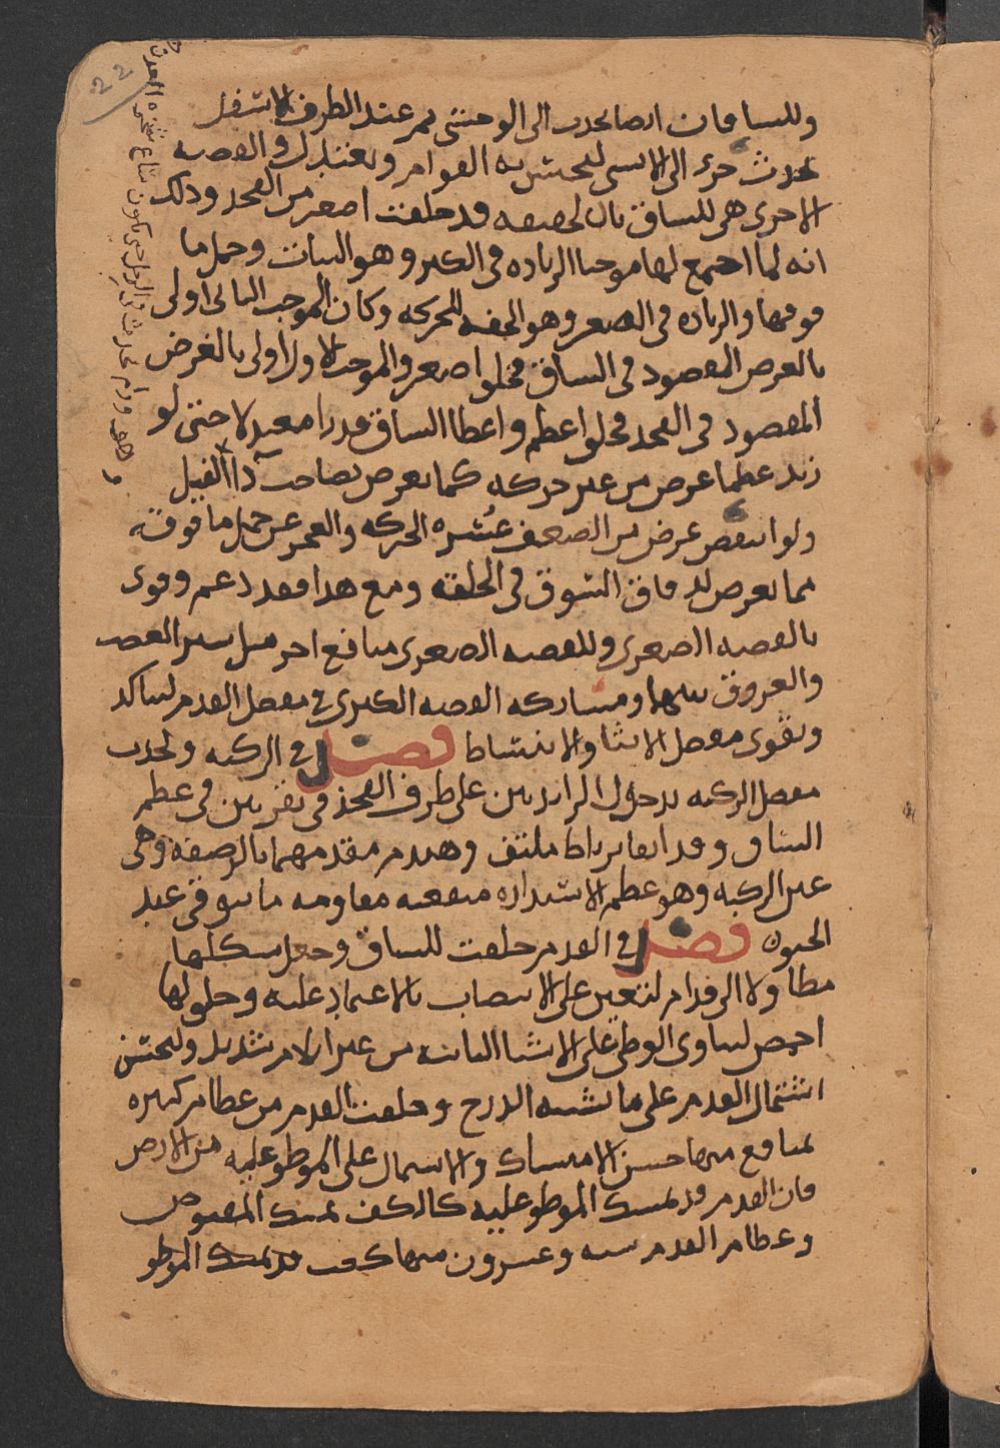 وللساقان ايضا تحدب الى الوحشى ثم عند الطرف الاسفل
تحدث حرى الى الانسى ليحسن به القوام ويعتدل والقصبه
الاخرى هى للساق بالحقيقه قد خلقت اصغر من الفخد وذلك
انه لما اجتمع لها موجبا الزياده فى الكبر وهو الثبات وحمل ما
فوقها والزياده فى الصغر وهو الخفه للحركه وكان الموجب الثانى اولى
بالغرض المقصود فى الساق فخلق اصغر والموجب الاول اولى بالغرض
المقصود فى الفخد فخلق اعظم واعطا الساق قدرا معتدلا حتى لو
زيد عظما عرض من عسر حركه كما يعرض لصاحب دآ الفيل
ولو انتقص عرض من الضعف وعسره الحركه والعجز عن حمل ما فوقه
مما يعرض لدقاق السوق فى الخلقه ومع هدا فقد دعم وقوى
بالقصبه الصغرى وللقصبه الصغرى منافع اخر مثل ستر العصب
والعروق بينهما ومشاركه القصبه الكبرى فى مفصل القدم ليتاكد
ويقوى مفصل الانثنا والانبساط فصل فى الركبه وتحدث
مفصل الركبه بدخول الزايدتين على طرف الفخذ فى نقرتين فى عظم
الساق وقد اتفا برباط ملتف وهندم مقدمهما بالرضفه وهى
عين الركبه وهو عظم الاستداره منفعته مقاومه ما يتوقى عند
الجثو فصل فى القدم خلقت للساق وجعل شكلها
مطاولا الى قدام لتعين على الانتصاب بالاعتماد عليه وخلق لها
اخمص ليتاوى الوطى على الاشيا الناتئه من غير ايلام شديد وليحسن
اشتمال القدم على ما يشبه الدرج وخلقت القدم من عظام كثيره
لمنافع منها حسن الامساك والاشتمال على الموطو عليه من الارض
فان القدم قد تمسك الموطو عليه كالكف تمسك المقبوض
وعظام القدم سته وعشرون منها كعب قد تمسك الموطو